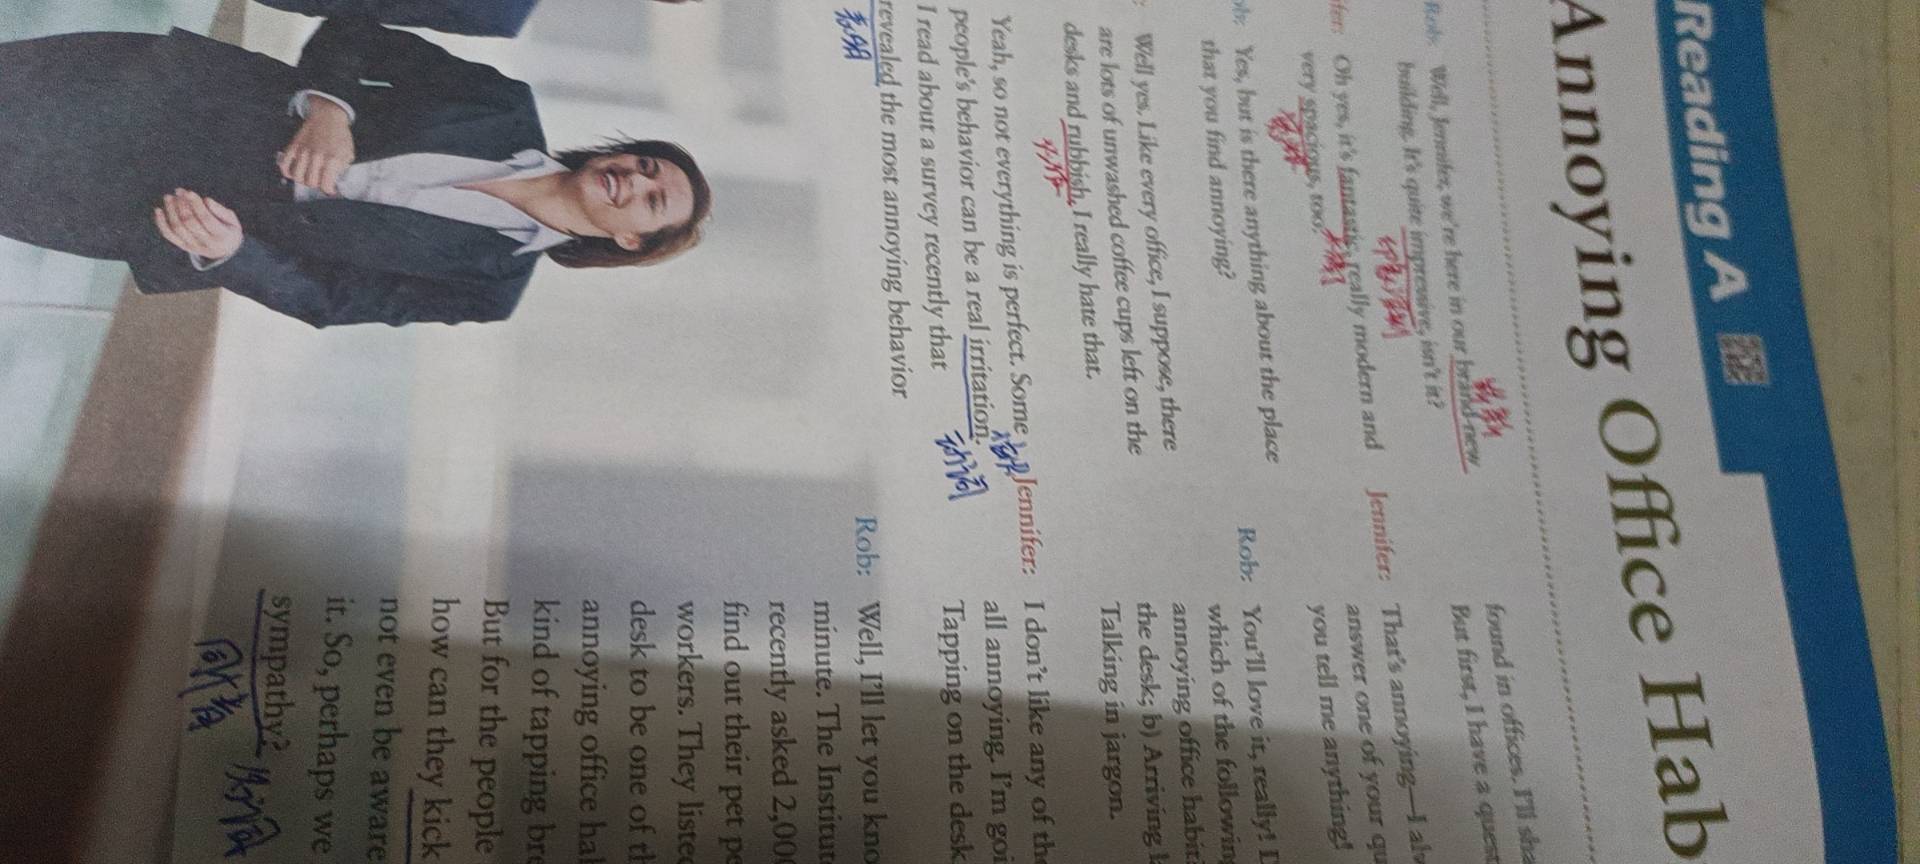 Reading A
Annoying Office Hab
Rob: Well, Jennifer, we're here in our brand-new
崭新
building. It's quite impressive, isn't it?
Oh yes, it's fantastic, really modern and
very spacious, too.
Yes, but is there anything about the place
that you find annoying?
Well yes. Like every office, I suppose, there
are lots of unwashed coffee cups left on the
desks and rubbish, I really hate that.
Yeah, so not everything is perfect. Some
people's behavior can be a real irritation.
I read about a survey recently that
revealed the most annoying behavior
表明
found in offices. I'll sha
But first, I have a quest
Jennifer: That's annoying—I alw
answer one of your qu
you tell me anything!
Rob: You'll love it, really! I
which of the following
annoying office habit
the desk; b) Arriving l
Talking in jargon.
Jennifer: I don't like any of th
all annoying. I'm goi
Tapping on the desk
Rob: Well, I'll let you kno
minute. The Institut
recently asked 2,00
find out their pet pe
workers. They listed
desk to be one of th
annoying office hab
kind of tapping bre
But for the people
how can they kick
not even be aware
it. So, perhaps we
sympathy?